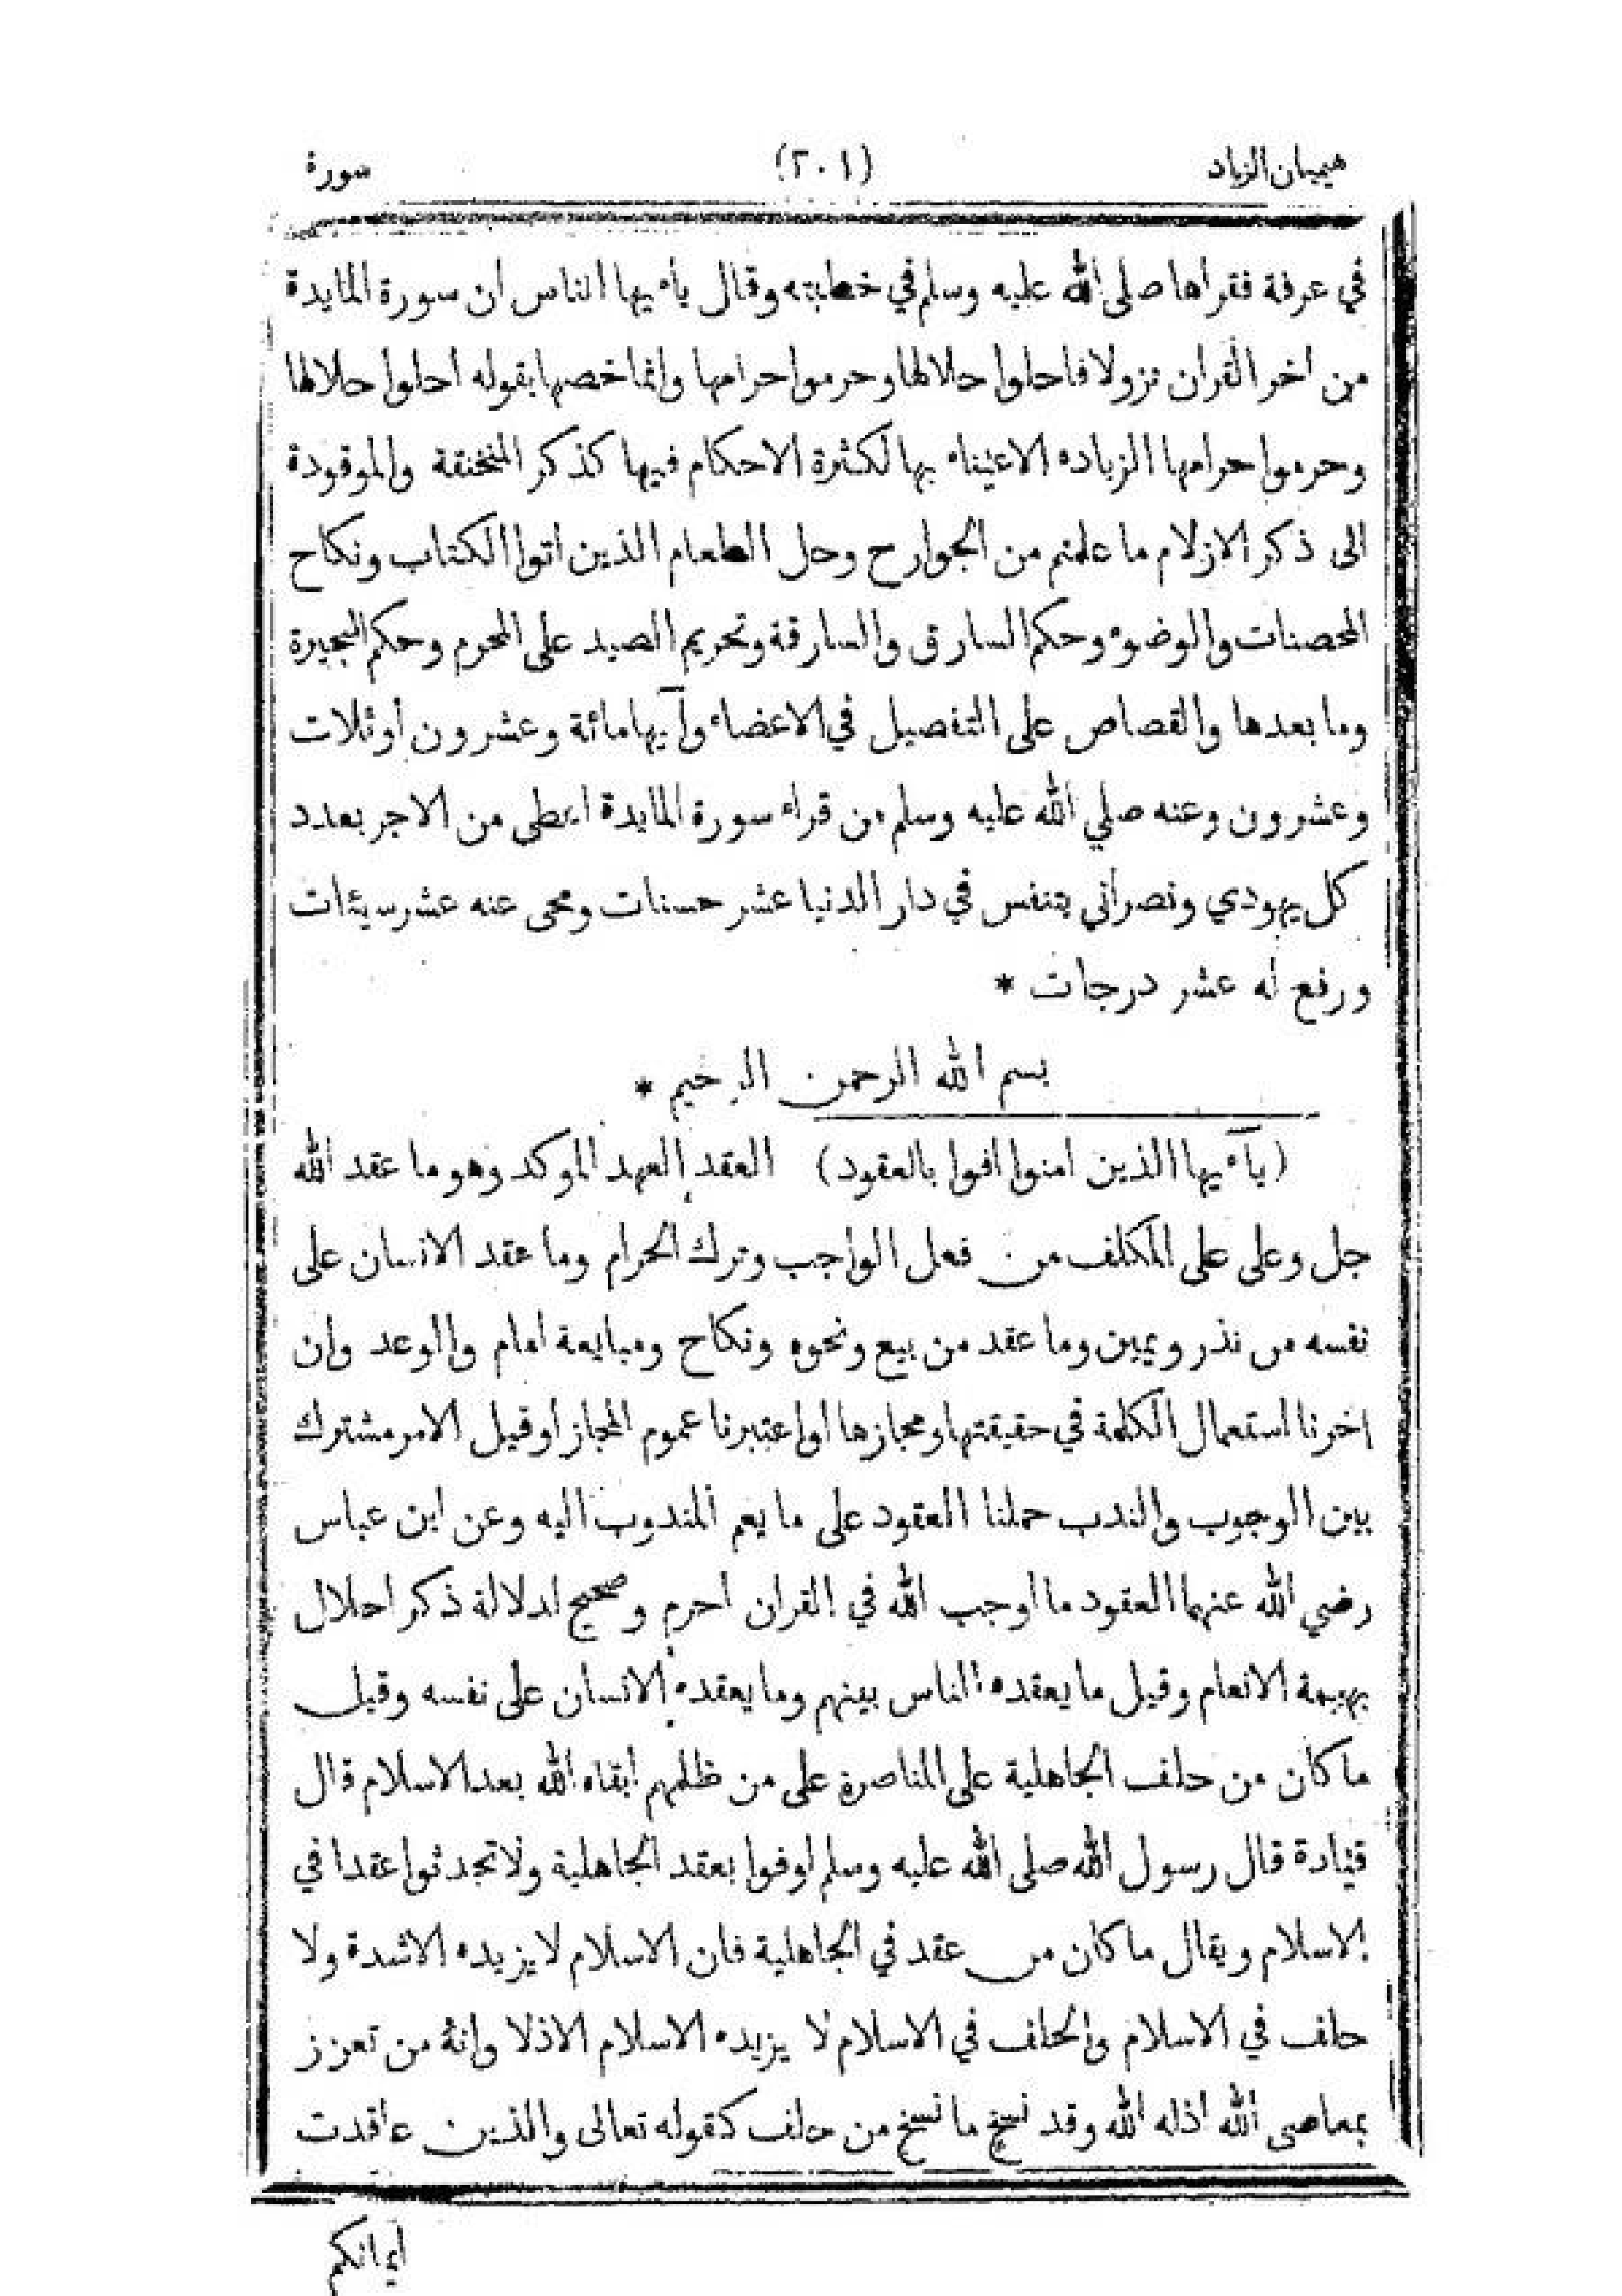 هيميان الزاد (٢٠١) سورة
في عرفة فقرأها صلى الله عليه وسلم في خطبته وقال يأءيها الناس ان سورة المايدة
من اخر القران نزولا فاحلوا حلالها وحرموا حرامها وانما خصها بقوله احلوا حلالها
وحرموا حرامها الزيادة الاعيناء بها لكثرة الاحكام فيها كذكر المنخنقة والموقودة
الى ذكر الازلام ما علمتم من الجوارح وحل الطعام الذين اتوا الكتاب ونكاح
المحصنات والوضوء وحكم السارق والسارقة وتحريم الصيد على المحرم وحكم البحيرة
وما بعدها والقصاص على التفصيل في الاعضاء وآيها مائة وعشرون أو ثلاث
وعشرون وعنه صلي الله عليه وسلم من قراء سورة المايدة اعطى من الاجر بعدد
كل يهودي ونصراني يتنفس في دار الدنيا عشر حسنات ومحى عنه عشر سيئات
ورفع له عشر درجات *
بسم الله الرحمن الرحيم *
(يآءيها الذين امنوا افوا بالعقود) العقد العهد الموكد وهو ما عقد الله
جل وعلى على المكلف من فعل الواجب وترك الحرام وما عقد الانسان على
نفسه من نذر ويمين وما عقد من بيع ونحوه ونكاح ومبايعة امام والوعد وان
اخرنا استعمال الكلمة في حقيقتها ومجازها اوا عتبرنا عموم المجاز أو قيل الامر مشترك
بين الوجوب والندب حملنا العقود على ما يعم المندوب اليه وعن ابن عباس
رضي الله عنهما العقود ما أوجب الله في القران احرم وصحيح لدلالة ذكر احلال
بهيمة الانعام وقيل ما يعقده الناس بينهم وما يعقده الانسان على نفسه وقيل
ما كان من حلف الجاهلية على المناصرة على من ظلمهم ابقاه الله بعد الاسلام قال
قتادة قال رسول الله صلى الله عليه وسلم اوفوا بعقد الجاهلية ولا تحدثوا عقدا في
الاسلام ويقال ما كان من عقد في الجاهلية فان الاسلام لا يزيده الا شدة ولا
حلف في الاسلام والحلف في الاسلام لا يزيده الاسلام الا ذلا وانه من تعزز
بمعاصى الله اذله الله وقد نسخ ما نسخ من حلف كقوله تعالى والذين عاقدت
ايمانكم